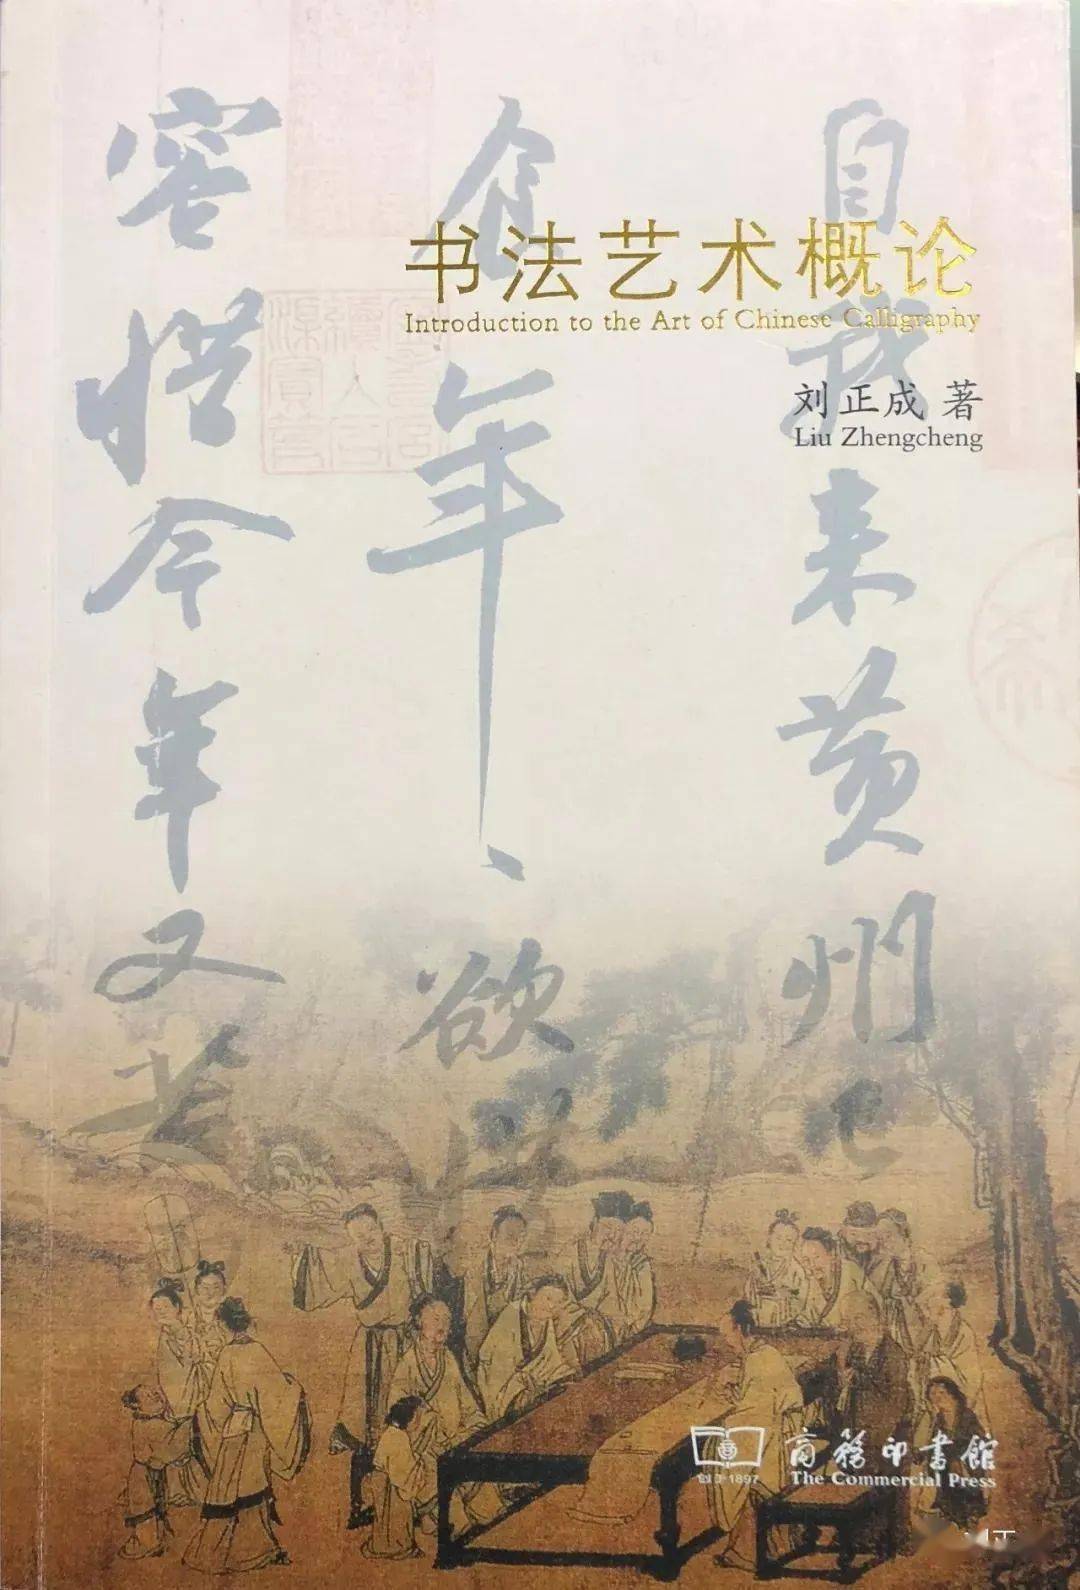 书法艺术概论
Introduction to the Art of Chinese Calligraphy
刘正成 著
Liu Zhengcheng
自我来黄州已
食年、欲惜
容惜今年又苦
创于1897
商務印書館
The Commercial Press